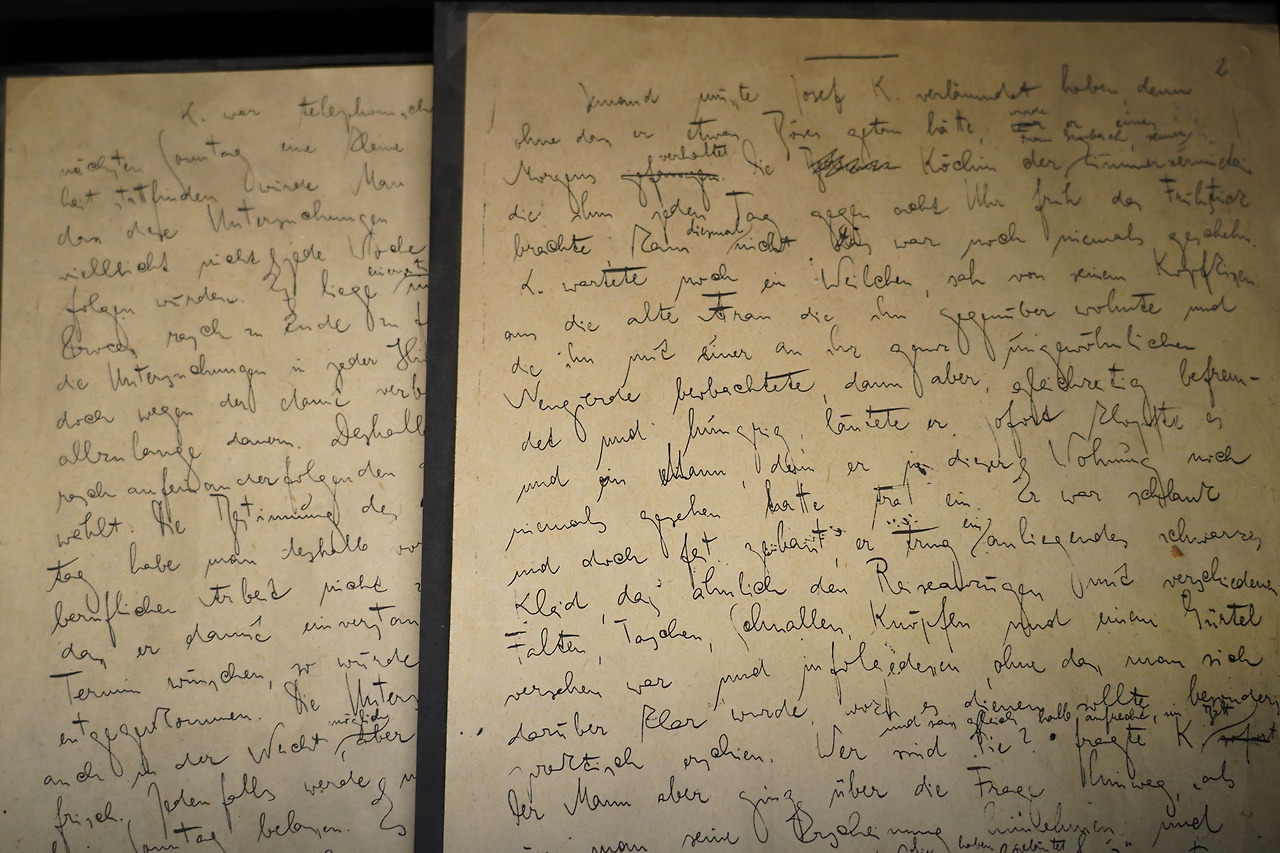 K. war telephonisch
nächsten Sonntag eine kleine
heit stattfinden würde. Man
dass diese Untersuchungen
vielleicht nicht jede Woche
folgen würden. Es liege
zu Ende zu
die Untersuchungen in jeder
doch wegen der damit verb
allzulange dauern. Deshalb
rasch aufeinanderfolgenden
wählt. Die Bestimmung des
tag habe man deshalb vor
beruflichen Arbeit nicht
dass er damit einverstan
Termin wünschen, so würde
entgegenkommen. Die Unters
möglich
auch in der Nacht, aber
frisch. Jedenfalls werde
Sonntag belassen. Es
2
Jemand musste Josef K. verläumdet haben, denn
ohne dass er etwas Böses getan hätte, wurde er eines
Frau Grubach, seiner
Morgens gefangen verhaftet. Die Köchin der Zimmervermieterin
die ihm jeden Tag gegen acht Uhr früh das Frühstück
brachte, kam diesmal nicht. Das war noch niemals geschehn.
K. wartete noch ein Weilchen, sah von seinem Kopfkissen
aus die alte Frau die ihm gegenüber wohnte und
die ihn mit einer an ihr ganz ungewöhnlichen
Neugierde beobachtete, dann aber, gleichzeitig befrem-
det und hungrig, läutete er. Sofort klopfte es
und ein Mann, den er in dieser Wohnung noch
niemals gesehen hatte trat ein. Er war schlank
und doch fest gebaut, er trug ein anliegendes schwarzes
Kleid, das ähnlich den Reiseanzügen mit verschiedenen
Falten, Taschen, Schnallen, Knöpfen und einem Gürtel
versehen war und infolgedessen, ohne dass man sich
darüber klar wurde, wozu es dienen sollte, besonders
praktisch erschien. Wer sind Sie? fragte K.
und sass gleich halb aufrecht im Bett
Der Mann aber ging über die Frage hinweg, als
müsse man seine Erscheinung hinnehmen und